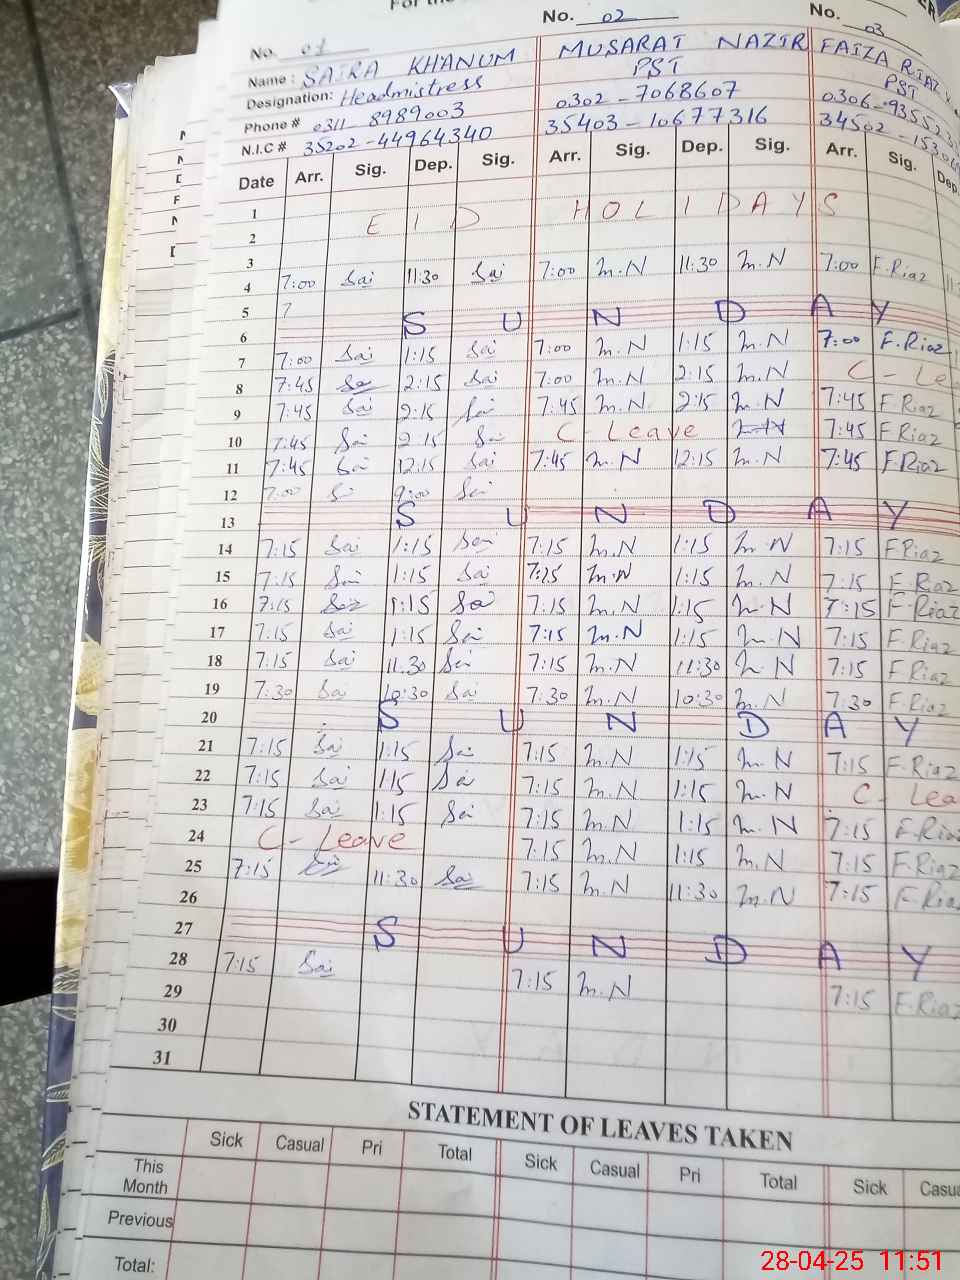 For the
No. 01 No. 02 No. 03
Name : SAIRA KHANUM MUSARAT NAZIR FAIZA RIAZ
Designation: Headmistress PST PST
Phone # 0311 8989003 0302-7068607
N.I.C # 35202-44964340 35403-10677316
Date Arr. Sig. Dep. Sig. Arr. Sig. Dep. Sig. Arr. Sig. Dep.
1 EID HOLIDAYS
2
3
4 7:00 Sai 11:30 Sai 7:00 M.N 11:30 M.N 7:00 F.Riaz
5 7
6 SUNDAY
7 7:00 Sai 1:15 Sai 7:00 M.N 1:15 M.N 7:00 F.Riaz
8 7:45 Sai 2:15 Sai 7:00 M.N 2:15 M.N C - Le
9 7:45 Sai 2:15 Sai 7:45 M.N 2:15 M.N 7:45 F Riaz
10 7:45 Sai 2:15 Sai C - Leave 7:45 F Riaz
11 7:45 Sai 12:15 Sai 7:45 M.N 12:15 M.N 7:45 F.Riaz
12 7:00 9:00 Sai
13 SUNDAY
14 7:15 Sai 1:15 Sai 7:15 M.N 1:15 M.N 7:15 F.Riaz
15 7:15 Sai 1:15 Sai 7:15 M.N 1:15 M.N 7:15 F-Raz
16 7:15 Sai 1:15 Sai 7:15 M.N 1:15 M.N 7:15 F-Riaz
17 7:15 Sai 1:15 Sai 7:15 M.N 1:15 M.N 7:15 F.Riaz
18 7:15 Sai 11.30 Sai 7:15 M.N 11:30 M.N 7:15 F.Riaz
19 7:30 Sai 10:30 Sai 7:30 M.N 10:30 M.N 7:30 F.Riaz
20 SUNDAY
21 7:15 Sai 1:15 Sai 7:15 M.N 1:15 M.N 7:15 F.Riaz
22 7:15 Sai 1:15 Sai 7:15 M.N 1:15 M.N C - Lea
23 7:15 Sai 1:15 Sai 7:15 M.N 1:15 M.N 7:15 F.Riaz
24 C - Leave 7:15 M.N 1:15 M.N 7:15 F.Riaz
25 7:15 Sai 11:30 Sai 7:15 M.N 11:30 M.N 7:15 F.Riaz
26
27 SUNDAY
28 7:15 Sai 7:15 M.N 7:15 F.Riaz
29
30
31
STATEMENT OF LEAVES TAKEN
Sick Casual Pri Total Sick Casual Pri Total Sick Casu
This Month
Previous
Total:
28-04-25 11:51